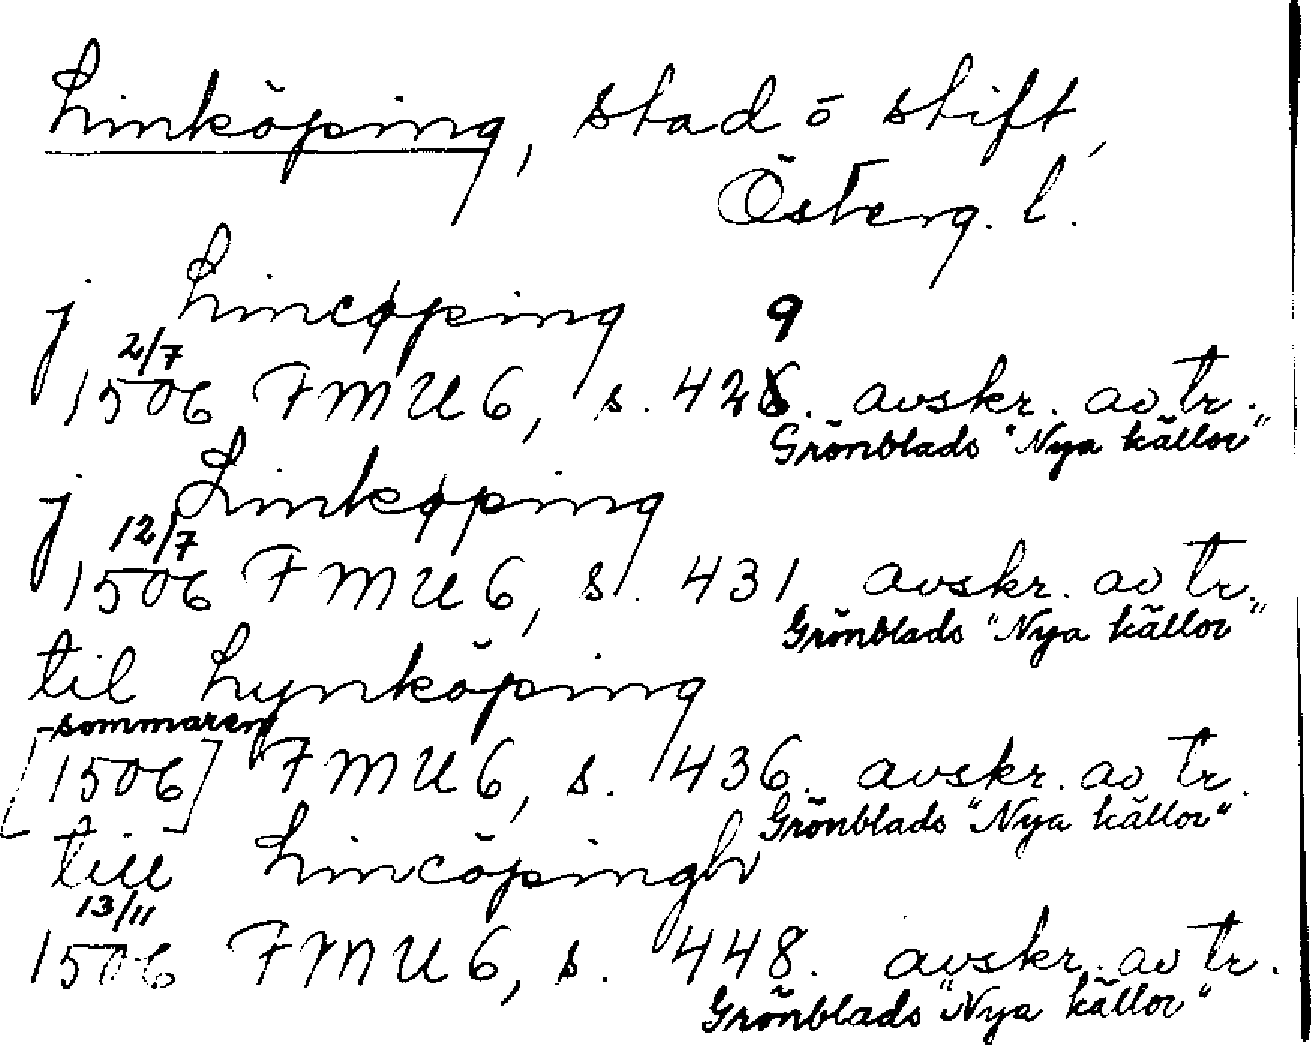 Linköping, stad o stift,
Österg. l.
j Lincøping
2/7 9
1506 FMU 6, s. 428. avskr. av tr.
Grönblads "Nya källor"
j Linkøping
12/7
1506 FMU 6, s. 431 avskr. av tr.
Grönblads "Nya källor"
til Lynköping
-sommaren
[1506] FMU 6, s. 436. avskr. av tr.
Grönblads "Nya källor"
till Lincöpingh
13/11
1506 FMU 6, s. 448. avskr. av tr.
Grönblads "Nya källor"